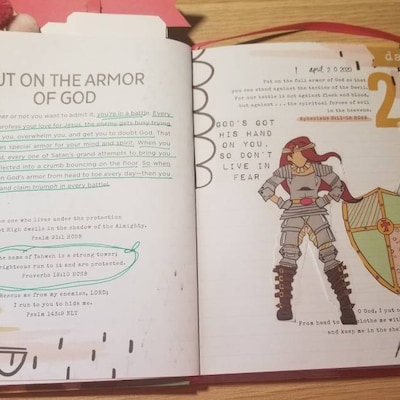 UT ON THE ARMOR
OF GOD
er or not you want to admit it, you're in a battle. Every
rofess your love for Jesus, the enemy gets busy trying
you, overwhelm you, and get you to doubt God. That
es special armor for your mind and spirit. When
d, every one of Satan's grand attempts to bring you
eflected into a crumb bouncing on the floor. So when
n God's armor from head to toe every day—then you
and claim triumph in every battle.
he one who lives under the protection
st High dwells in the shadow of the Almighty.
Psalm 91:1 HCSB
he name of Yahweh is a strong tower;
righteous run to it and are protected.
Proverbs 18:10 HCSB
Rescue me from my enemies, LORD;
I run to you to hide me.
Psalm 143:9 NLT
da
april 20 2020
2
Put on the full armor of God so that
you can stand against the tactics of the Devil.
For our battle is not against flesh and blood,
but against . . . the spiritual forces of evil
in the heavens.
Ephesians 6:11-12 HCSB
GOD'S GOT
HIS HAND
ON YOU,
SO DON'T
LIVE IN
FEAR
O God, I put o
From head to
clothe me with
and keep me in the she